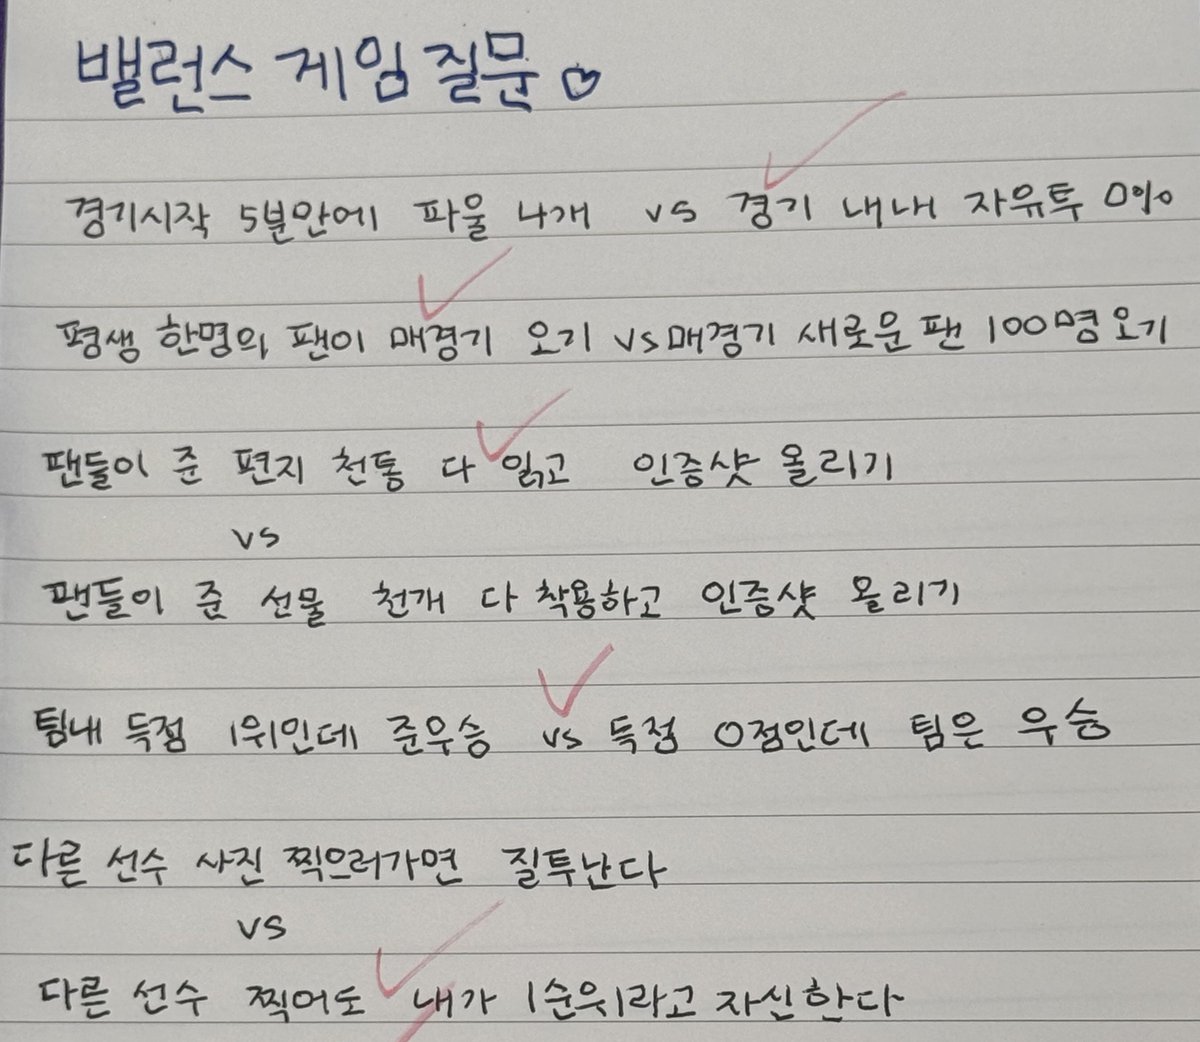 밸런스 게임 질문♡
경기시작 5분안에 파울 4개 vs 경기 내내 자유투 0%
평생 한명의 팬이 매경기 오기 vs 매경기 새로운 팬 100명 오기
팬들이 준 편지 천통 다 읽고 인증샷 올리기
vs
팬들이 준 선물 천개 다 착용하고 인증샷 올리기
팀내 득점 1위인데 준우승 vs 득점 0점인데 팀은 우승
다른 선수 사진 찍으러가면 질투난다
vs
다른 선수 찍어도 내가 1순위라고 자신한다